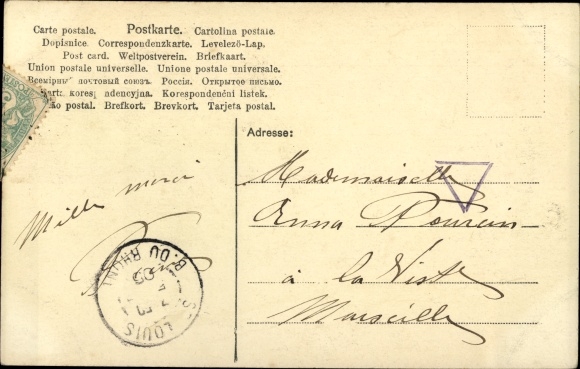 Carte postale. Postkarte. Cartolina postale.
Dopisnice. Correspondenzkarte. Levelező-Lap.
Post card. Weltpostverein. Briefkaart.
Union postale universelle. Unione postale universale.
Всемірный почтовый союзъ. Россія. Открытое письмо.
kores adencyjna. Korespondenční listek.
postal. Brefkort. Brevkort. Tarjeta postal.
Adresse:
Mademoiselle
Anna
à la Viste
Marseille
Mille merci
ST LOUIS
B. DU RHONE
05